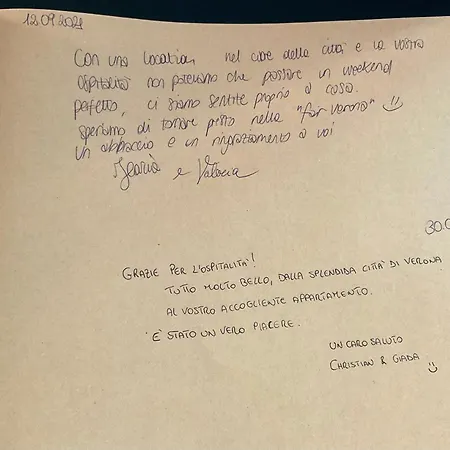 12.09.2021
Con una location nel cuore della città e la vostra
ospitalità non potevamo che passare un weekend
perfetto, ci siamo sentite proprio a casa.
Speriamo di tornare presto nella "fair Verona" :)
Un abbraccio e un ringraziamento a voi
Ilaria e Valeria
30.0
GRAZIE PER L'OSPITALITÀ!
TUTTO MOLTO BELLO, DALLA SPLENDIDA CITTÀ DI VERONA
AL VOSTRO ACCOGLIENTE APPARTAMENTO.
È STATO UN VERO PIACERE.
UN CARO SALUTO
CHRISTIAN & GIADA :)